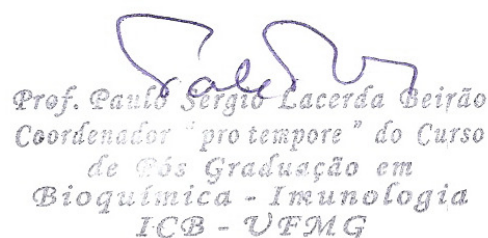 Prof. Paulo Sergio Lacerda Beirão
Coordenador "pro tempore" do Curso
de Pós Graduação em
Bioquímica - Imunologia
ICB - UFMG